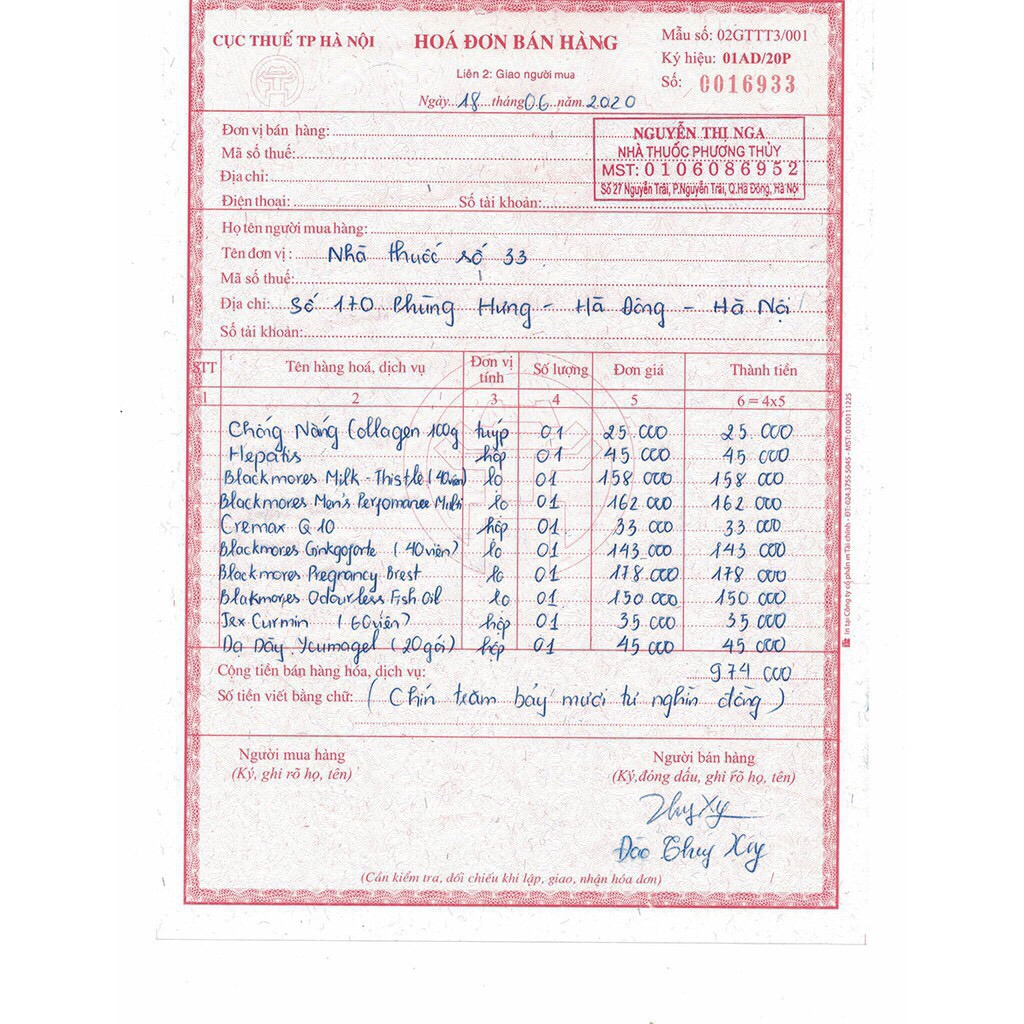 CỤC THUẾ TP HÀ NỘI
HOÁ ĐƠN BÁN HÀNG
Mẫu số: 02GTTT3/001
Ký hiệu: 01AD/20P
Liên 2: Giao người mua
Số: 0016933
Ngày 18 tháng 06 năm 2020
Đơn vị bán hàng:
Mã số thuế:
Địa chỉ:
Điện thoại: Số tài khoản:
NGUYỄN THỊ NGA
NHÀ THUỐC PHƯƠNG THỦY
MST: 0106086952
Số 27 Nguyễn Trãi, P.Nguyễn Trãi, Q.Hà Đông, Hà Nội
Họ tên người mua hàng:
Tên đơn vị: Nhà thuốc số 33
Mã số thuế:
Địa chỉ: Số 170 Phùng Hưng - Hà Đông - Hà Nội
Số tài khoản:
STT Tên hàng hoá, dịch vụ Đơn vị tính Số lượng Đơn giá Thành tiền
1 2 3 4 5 6 = 4x5
Chống Nắng Collagen 100g tuýp 01 25 000 25 000
Hepatis hộp 01 45 000 45 000
Blackmores Milk-Thistle (40viên) lọ 01 158 000 158 000
Blackmores Men's Perfomance Multi lọ 01 162 000 162 000
Cremax Q10 hộp 01 33 000 33 000
Blackmores Ginkgoforte (40viên) lọ 01 143.000 143 000
Blackmores Pregnancy Brest lọ 01 178.000 178 000
Blakmores Odourless Fish Oil lọ 01 150 000 150 000
Jex Curmin (60viên) hộp 01 35 000 35 000
Dạ Dày Yumagel (20gói) hộp 01 45 000 45 000
Cộng tiền bán hàng hóa, dịch vụ: 974 000
Số tiền viết bằng chữ: (Chín trăm bảy mươi tư nghìn đồng)
Người mua hàng
(Ký, ghi rõ họ, tên)
Người bán hàng
(Ký,đóng dấu, ghi rõ họ, tên)
Đào Thúy Xíy
(Cần kiểm tra, đối chiếu khi lập, giao, nhận hóa đơn)
In tại Công ty cổ phần in Tài chính - ĐT: 024.3755 5045 - MST: 0100111225